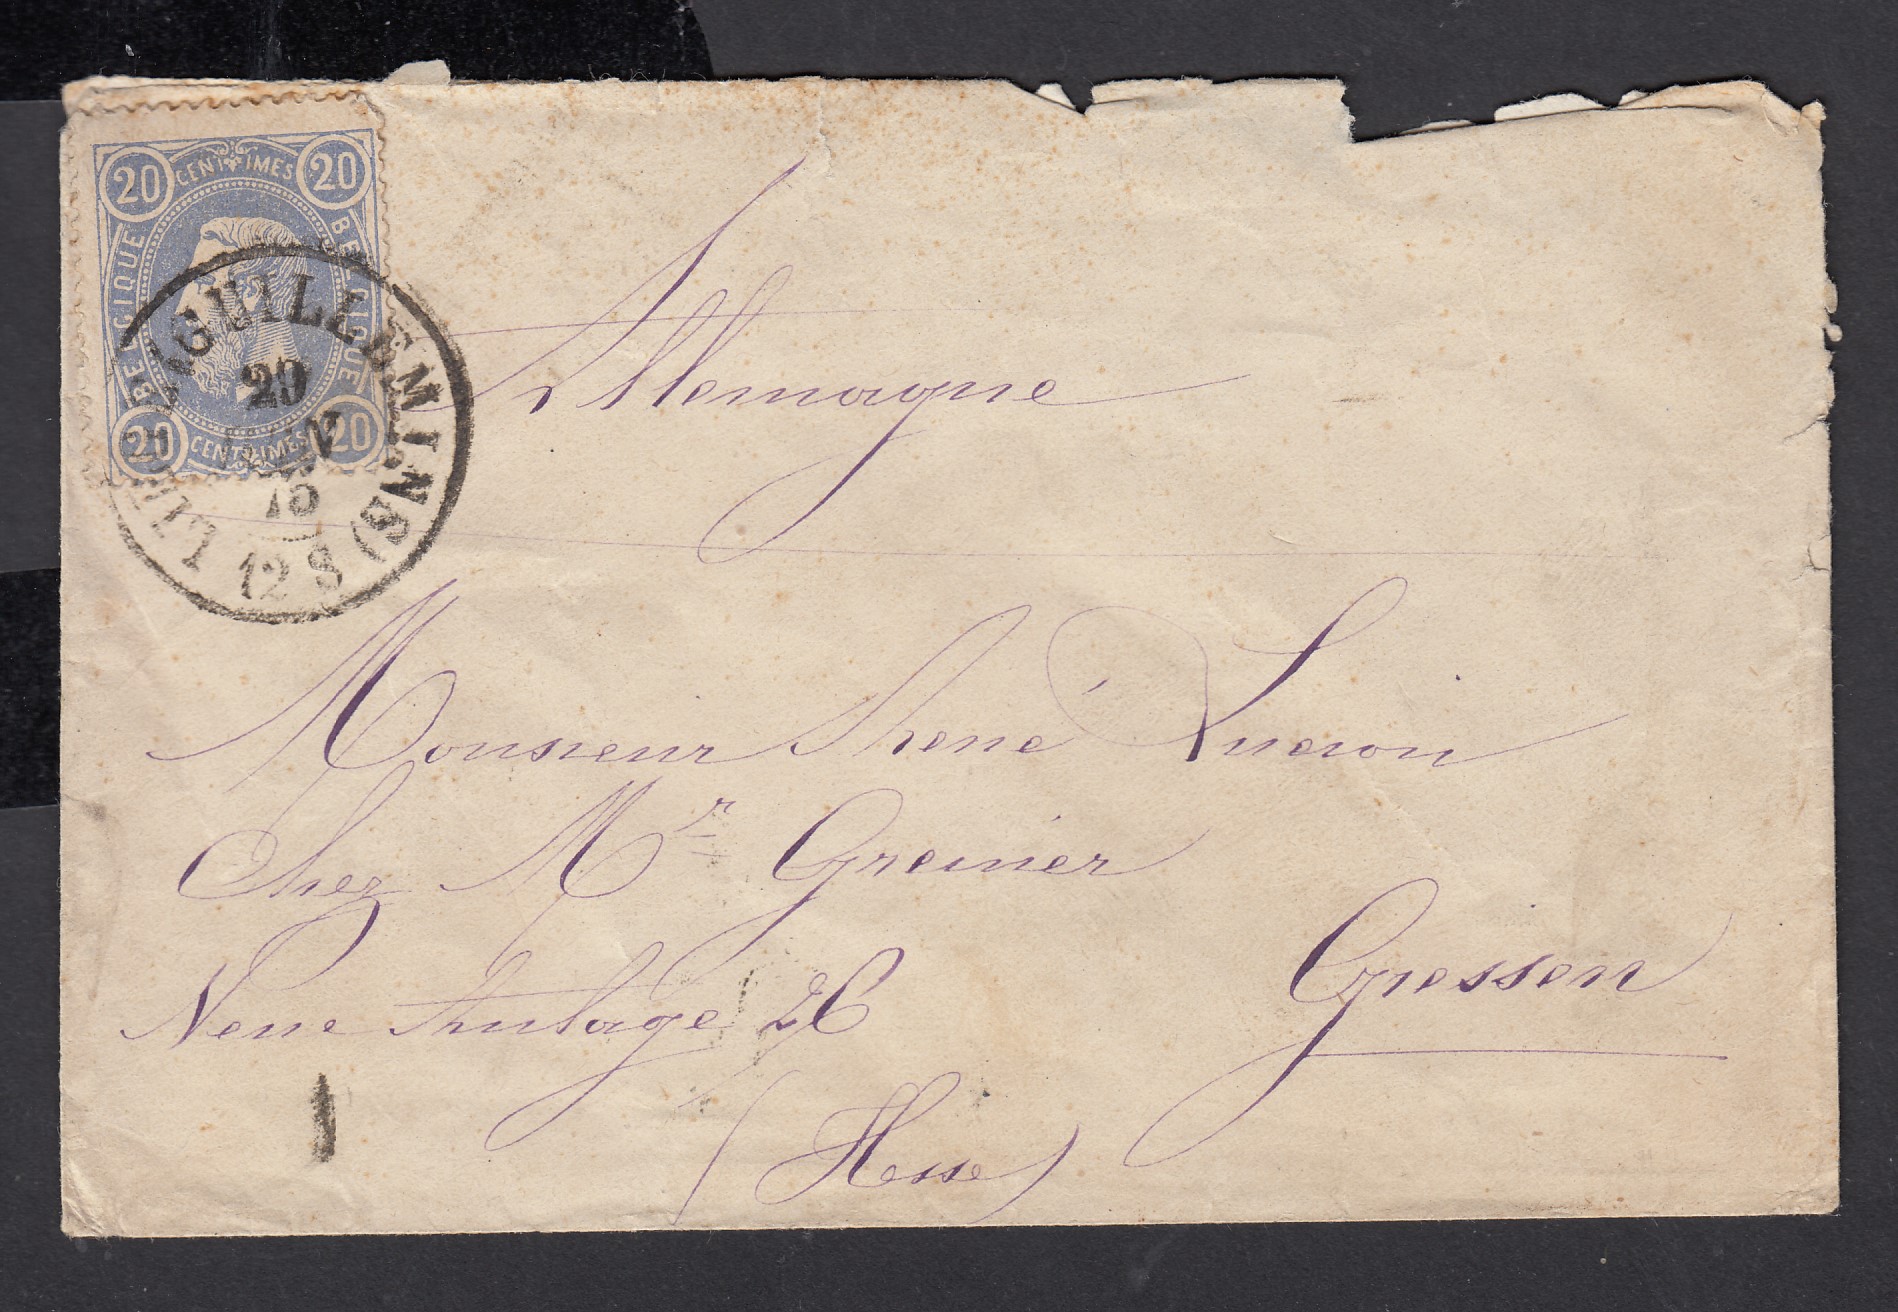 20 CENTIMES 20
BELGIQUE BELGIQUE
20 CENTIMES 20
LIEGE (GUILLEMINS)
20
JUIN
75
12 S
Allemagne
Monsieur Rhené
Chez Mr Greinier
Neue Anlage 26
Giessen
(Hesse)